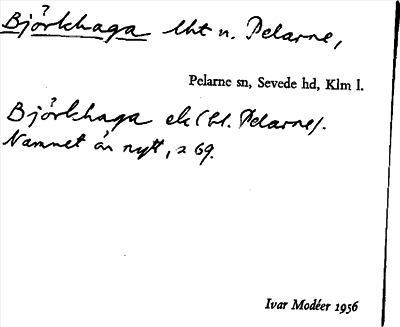 Björkhaga lht n. Pelarne,
Pelarne sn, Sevede hd, Klm l.
Björkhaga ek (bl. Pelarne).
Namnet är nytt, z 69.
Ivar Modéer 1956